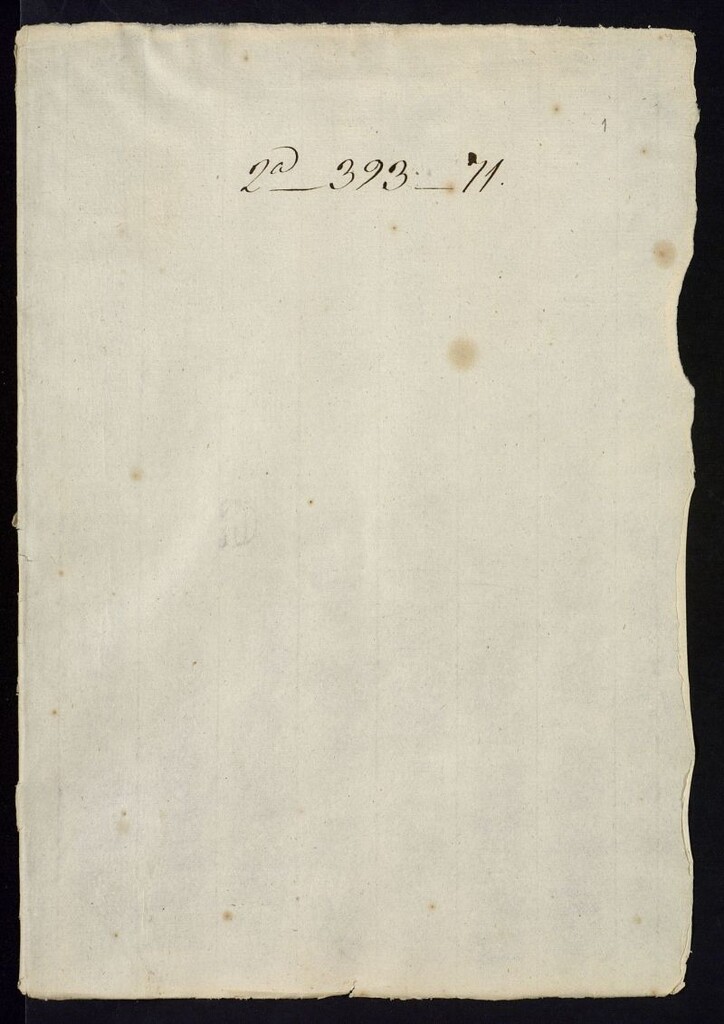 1
2ª_393._71.